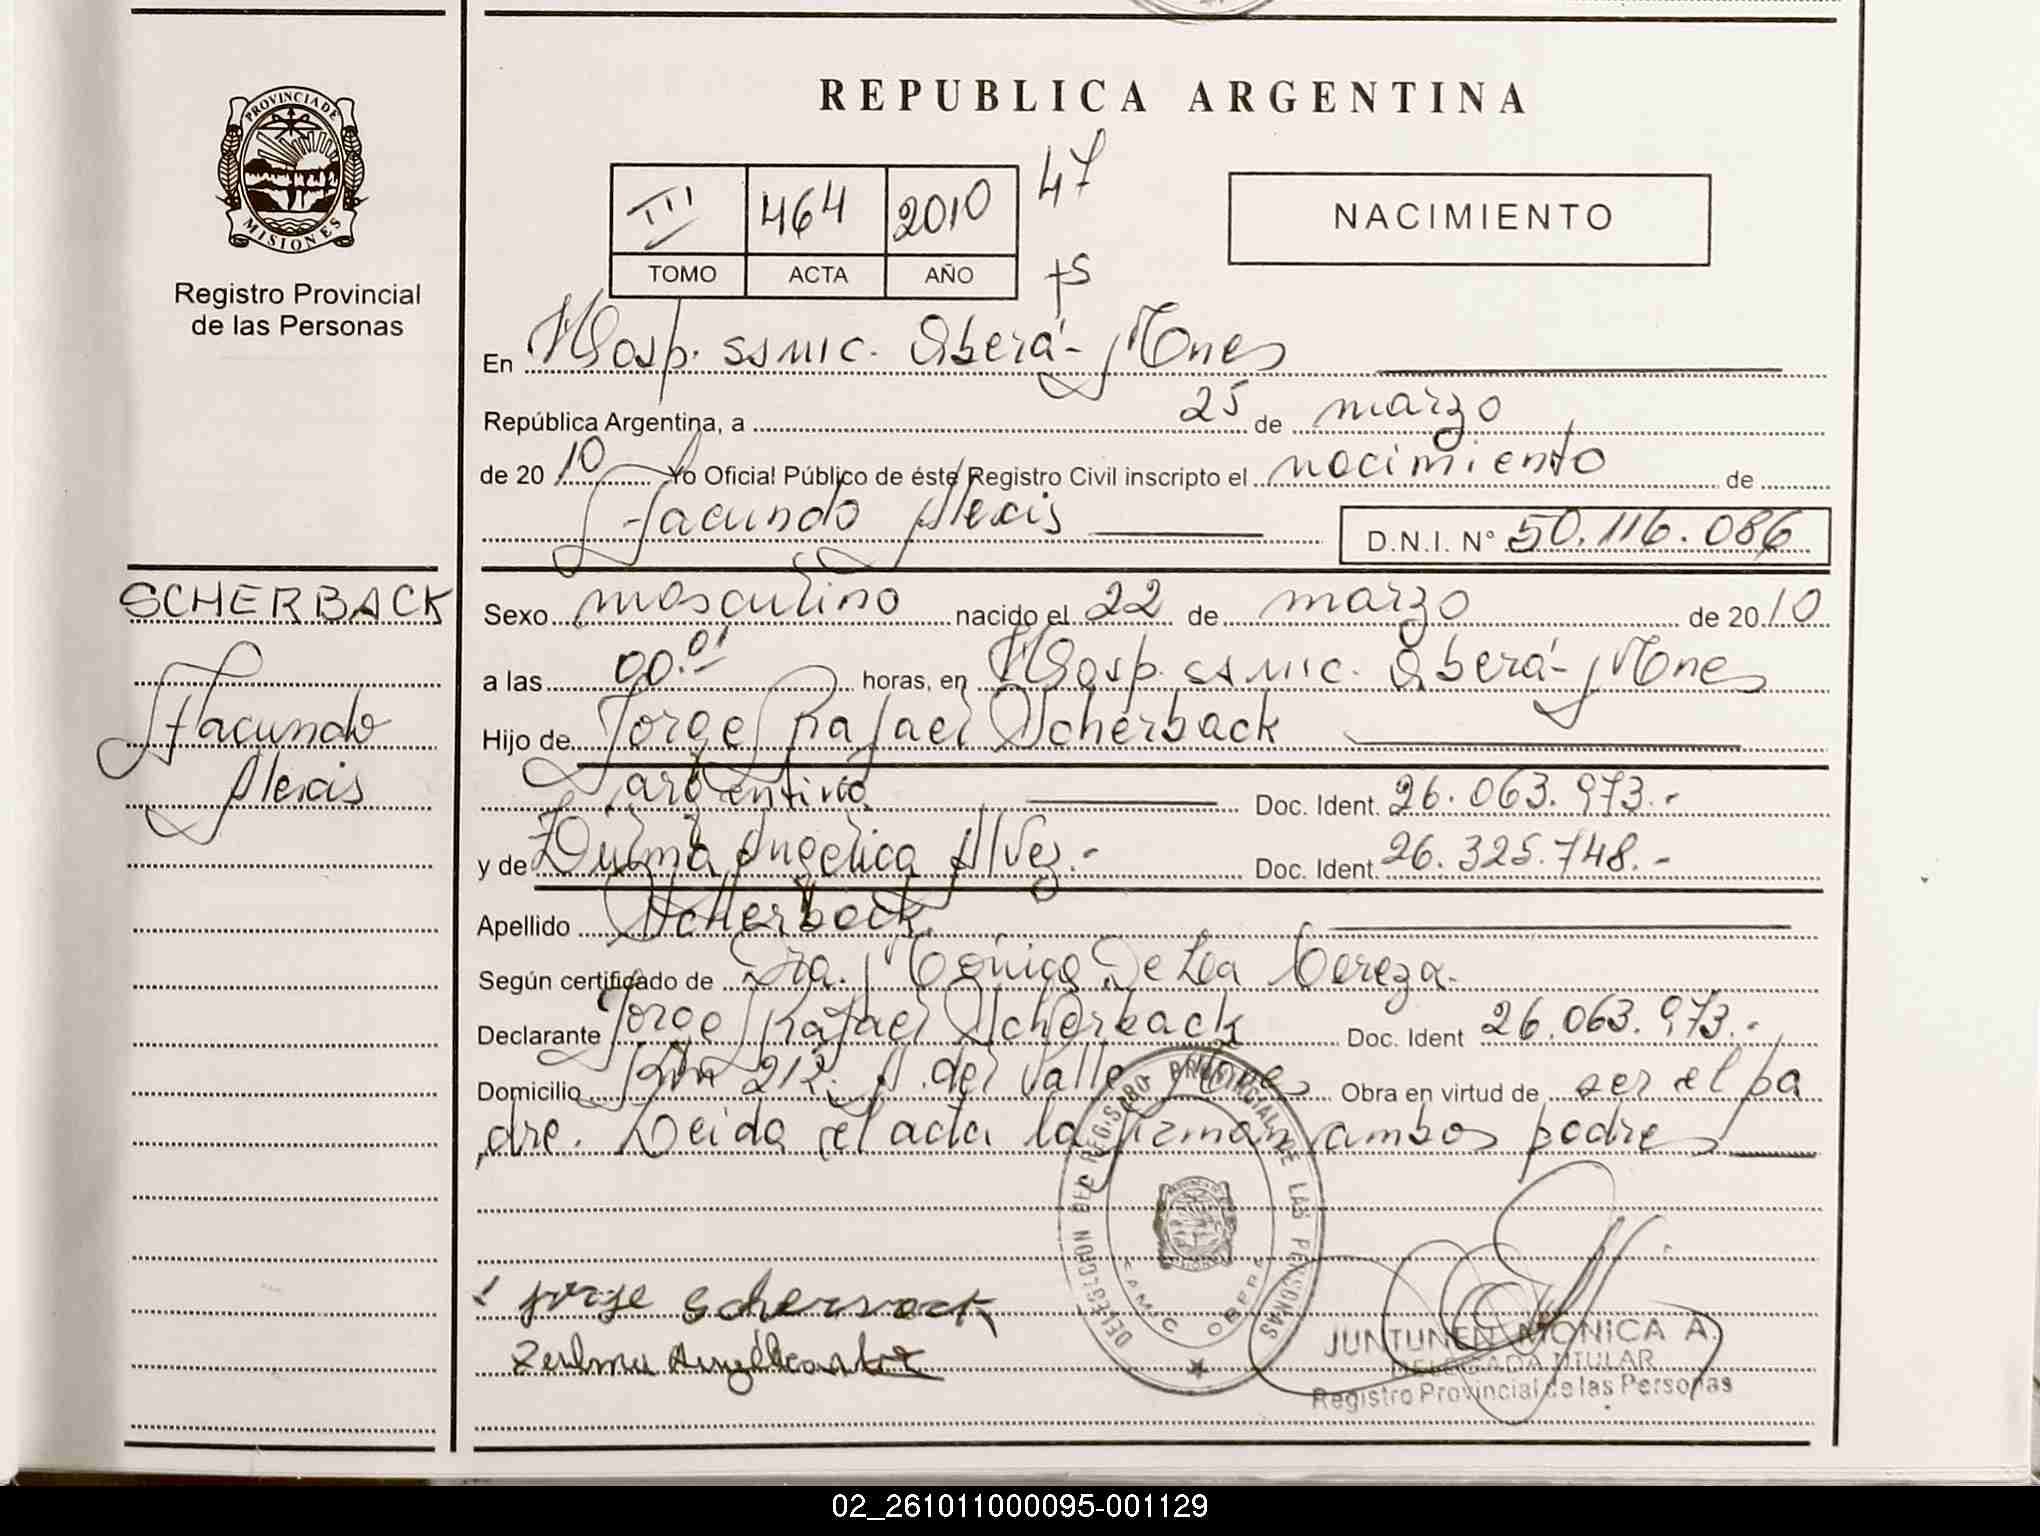 PROVINCIA DE
MISIONES
Registro Provincial
de las Personas
SCHERBACK
Facundo
Alexis
REPUBLICA ARGENTINA
III 464 2010 47
TOMO ACTA AÑO
NACIMIENTO
En Hosp. SSMIC. Oberá - Mnes
República Argentina, a 25 de marzo
de 20 10 Yo Oficial Público de éste Registro Civil inscripto el nacimiento de
Facundo Alexis D.N.I. N° 50.116.086
Sexo masculino nacido el 22 de marzo de 20 10
a las 00.01 horas, en Hosp. SSMIC. Oberá - Mnes
Hijo de Jorge Rafael Scherback
argentino Doc. Ident. 26.063.973.-
y de Zulma Angélica Alvez.- Doc. Ident. 26.325.748.-
Apellido Scherback
Según certificado de Dra. Mónica De La Cereza.
Declarante Jorge Rafael Scherback Doc. Ident 26.063.973.-
Domicilio Km 212. A. del Valle Mnes Obra en virtud de ser el pa
dre. Leida el acta la firman ambos padres
DELEGACION DEL REGISTRO PROVINCIAL DE LAS PERSONAS
SAMIC OBERA
Jorge Scherback
JUNTUNEN MONICA A.
DELEGADA TITULAR
Registro Provincial de las Personas
02_261011000095-001129